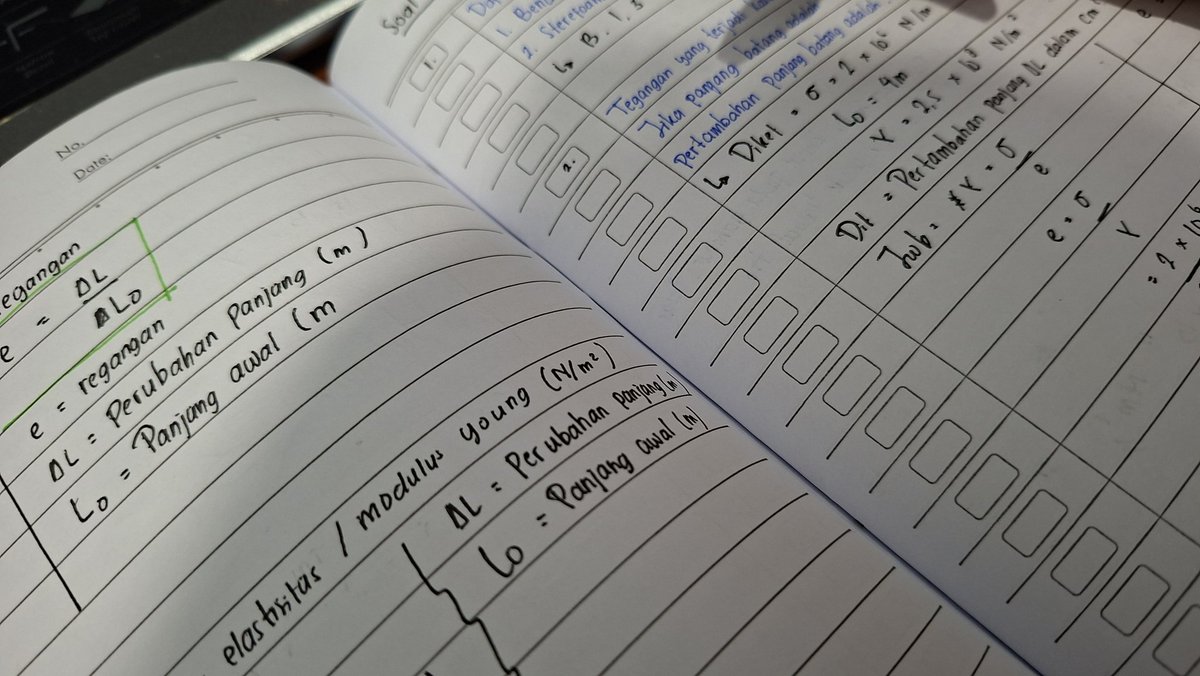 No.
Date:
egangan
e = ΔL
ΔL0
e = regangan
ΔL = Perubahan Panjang (m)
Lo = Panjang awal (m
elastisitas / modulus young (N/m²)
ΔL = Perubahan panjang (m)
Lo = Panjang awal (m)
Soal
1.
1.
2.
↳ B. 1, 3
2.
Tegangan yang terjadi
Jika panjang batang adalah
Pertambahan Panjang batang adalah
↳ Diket = σ = 2 x 10 N/m
Lo = 4m
Y = 2,5 x 10 N/m²
Dit = Pertambahan panjang ΔL dalam cm
Jwb = Y = σ
e
e = σ
Y
= 2 x 10⁶